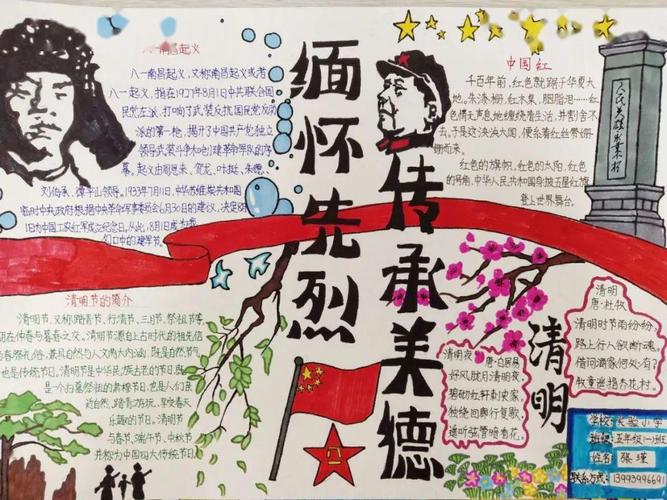 南昌起义
八一南昌起义,又称南昌起义或者
八一起义,指在1927年8月1日中共联合国
民党左派,打响了武装反抗国民党反动
派的第一枪,揭开了中国共产党独立
领导武装斗争和创建革命军队的序
幕。起义由周恩来、贺龙、叶挺、朱德、
刘伯承、谭平山领导。1933年7月1日,中华苏维埃共和国
临时中央政府根据中央革命军事委员会6月30日的建议,决定8月
1日为中国工农红军成立纪念日。从此,8月1日成为
们口中的建军节。
缅怀先烈
传承美德
中国红
千百年前,红色就踞于华夏大
地。朱漆栅,红木集,胭脂泪……红
色悄无声息地缠绕着生活,并割舍不
去。于是这泱泱大国,便系着红丝带姗
姗而来。
红色的旗帜,红色的太阳,红色
的号角,中华人民共和国身披五星红旗
登上世界舞台。
人民英雄
清明节的简介
清明节,又称踏青节、行清节、三月节、祭祖节等,
节在仲春与暮春之交。清明节源自上古时代的祖先信
与春祭礼俗,兼具自然与人文两大内涵,既是自然节气
也是传统节日。清明节是中华民族古老的节日,既
是一个扫墓祭祖的肃穆节日,也是人们亲
近自然、踏青游玩、享受春天
乐趣的节日。清明节
与春节、端午节、中秋节
并称为中国四大传统节日
清明夜
唐·白居易
好风胧月清明夜,
碧砌红轩刺史家。
独绕回廊行复歇,
遥听弦管暗看花。
清明
清明
唐·杜牧
清明时节雨纷纷,
路上行人欲断魂。
借问酒家何处有?
牧童遥指杏花村。
学校:实验小学
班级:五年级一班
姓名:张瑾
联系方式:13993996691